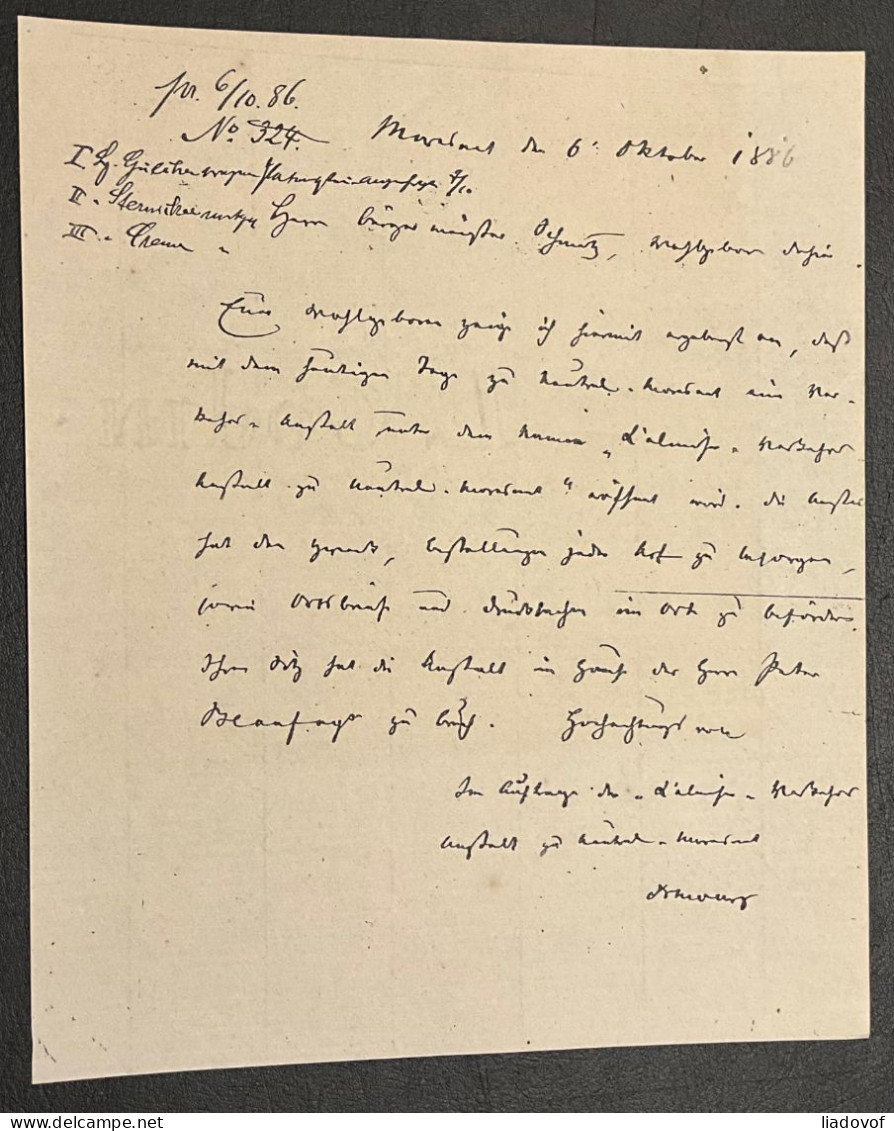 pr. 6/10. 86.
No. 324.
Moresnet den 6. Oktober 1886
I. Hg.
II.
III.
Herrn Bürgermeister Schmetz, Wohlgeboren dahier.
Euer Wohlgeboren zeige ich hiermit ergebenst an, daß
mit dem heutigen Tage zu Neutral-Moresnet eine Ver-
kehrs-Anstalt unter dem Namen „Kelmiser-Verkehrs
Anstalt zu Neutral-Moresnet" eröffnet wird. Die Anstalt
hat den Zweck, Bestellungen jeder Art zu besorgen,
sowie Ortsbriefe und Drucksachen im Orte zu befördern.
Ihren Sitz hat die Anstalt im Hause des Herrn Peter
zu
Hochachtungsvoll
Im Auftrage der „Kelmiser-Verkehrs
Anstalt zu Neutral-Moresnet
liadovof